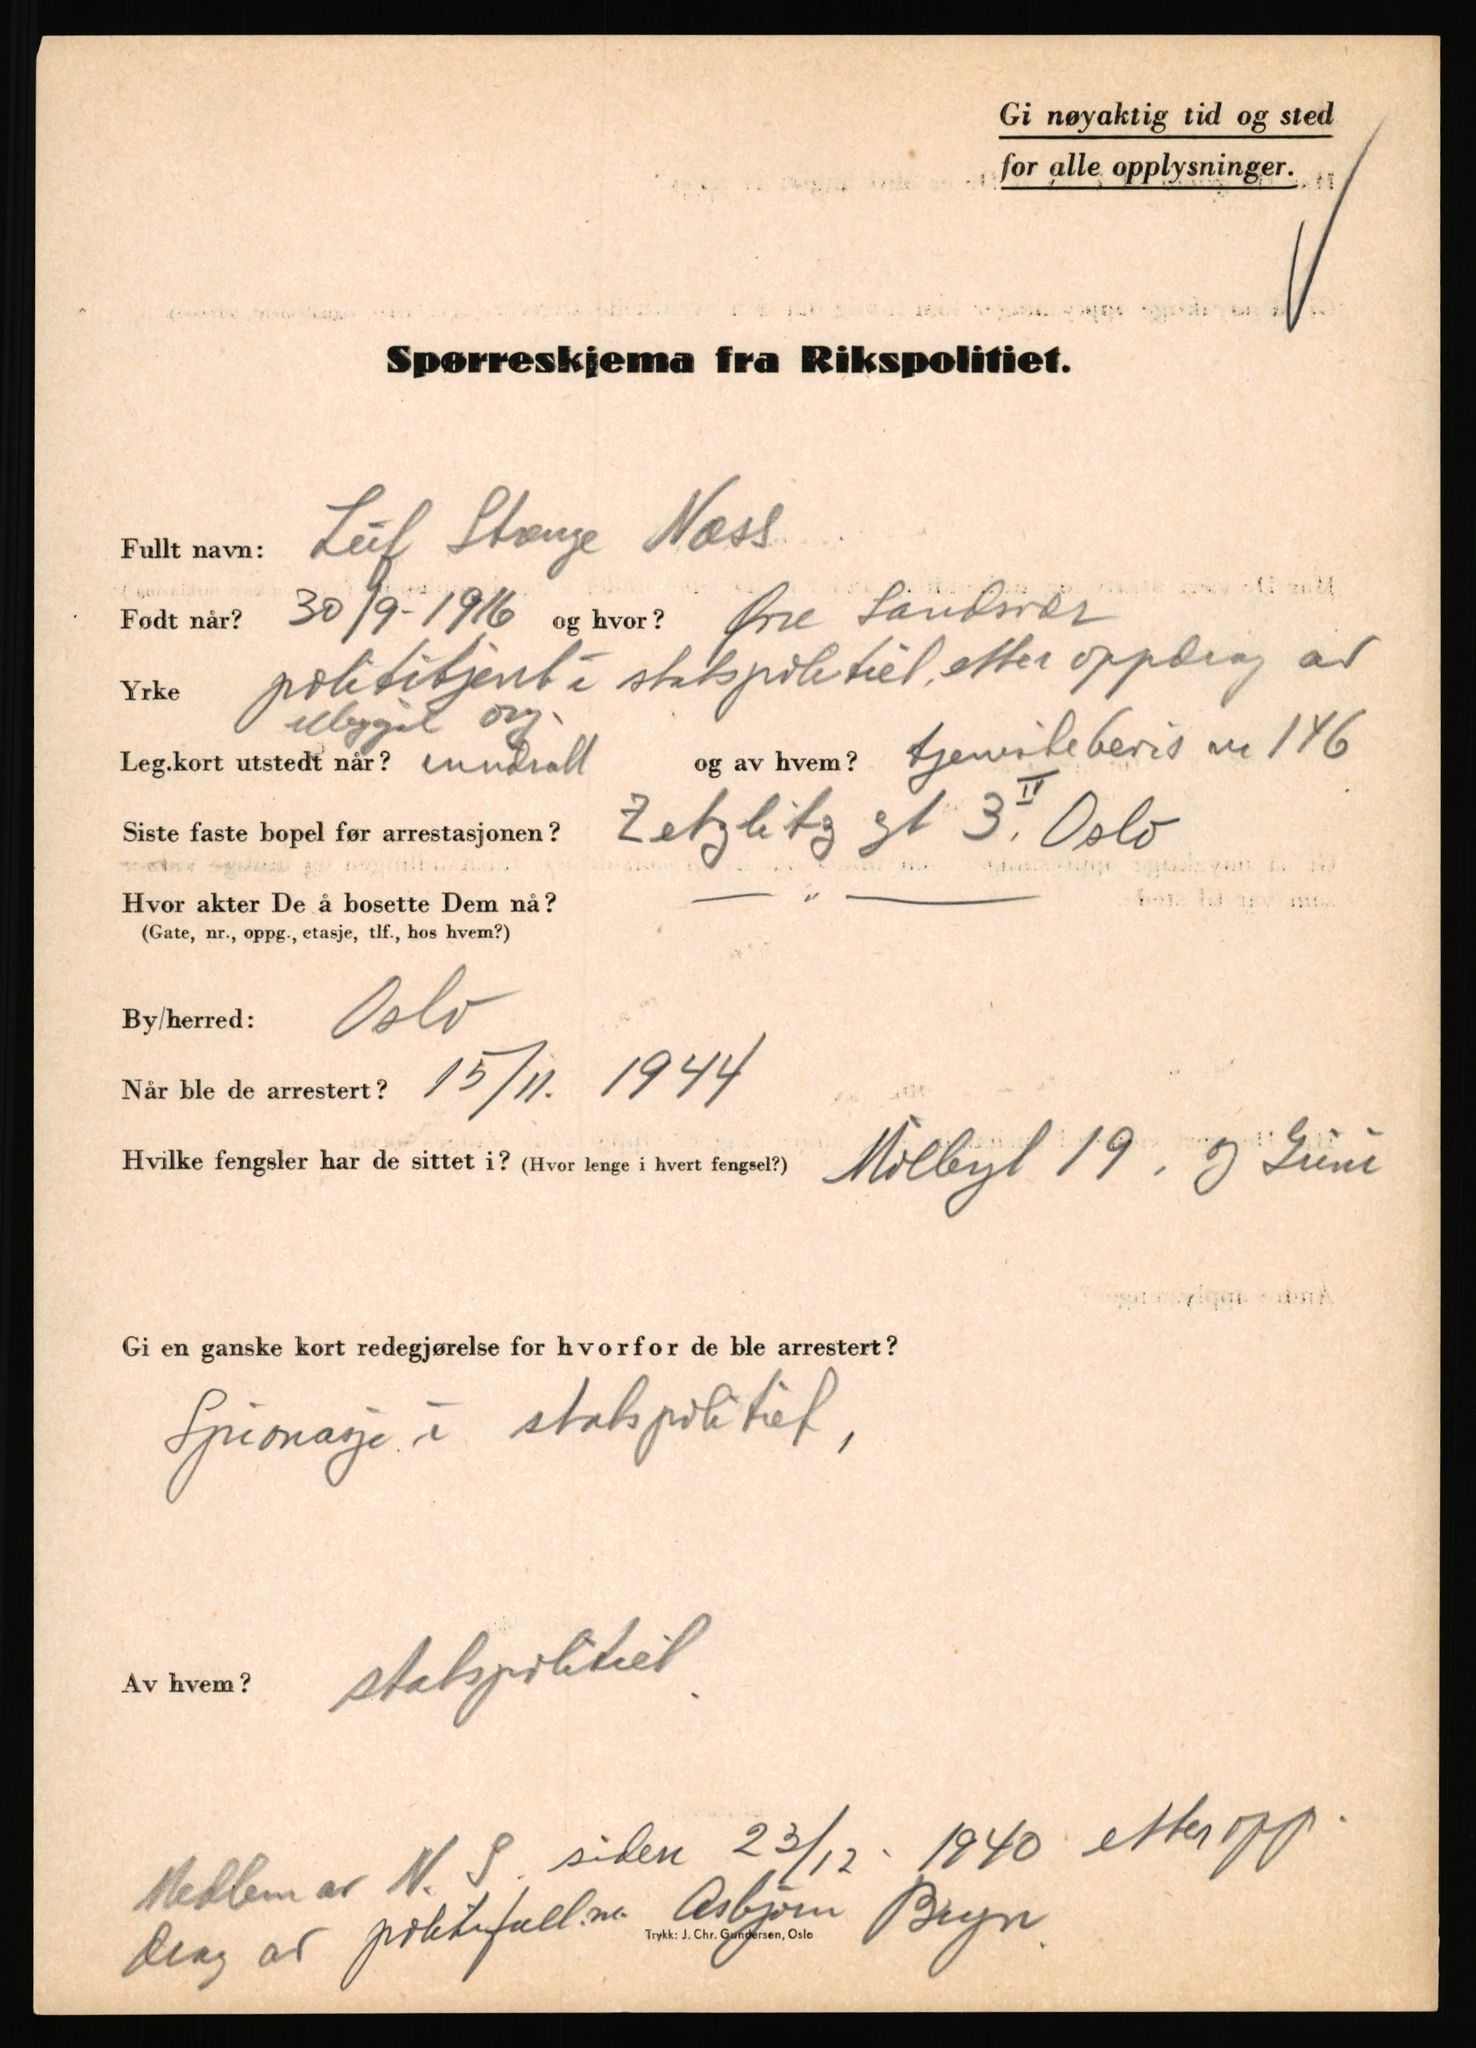 Gi nøyaktig tid og sted
for alle opplysninger.
Spørreskjema fra Rikspolitiet.
Fullt navn: Leif Stange Næss
Født når? 30/9-1916 og hvor? Øvre Sandsvær
Yrke polititjent i statspolitiet, etter oppdrag av
illegal org.
Leg.kort utstedt når? unndratt og av hvem? tjenestebevis nr 146
Siste faste bopel før arrestasjonen? Zetzlitz gt 3. II Oslo
Hvor akter De å bosette Dem nå? — " —
(Gate, nr., oppg., etasje, tlf., hos hvem?)
By/herred: Oslo
Når ble de arrestert? 15/11. 1944
Hvilke fengsler har de sittet i? (Hvor lenge i hvert fengsel?) Møllergt 19, og Grini
Gi en ganske kort redegjørelse for hvorfor de ble arrestert?
Spionasje i statspolitiet,
Av hvem? statspolitiet.
Medlem av N. S. siden 23/12. 1940 etter opp-
drag av politifullm. Asbjørn Bryn.
Trykk: J. Chr. Gundersen, Oslo